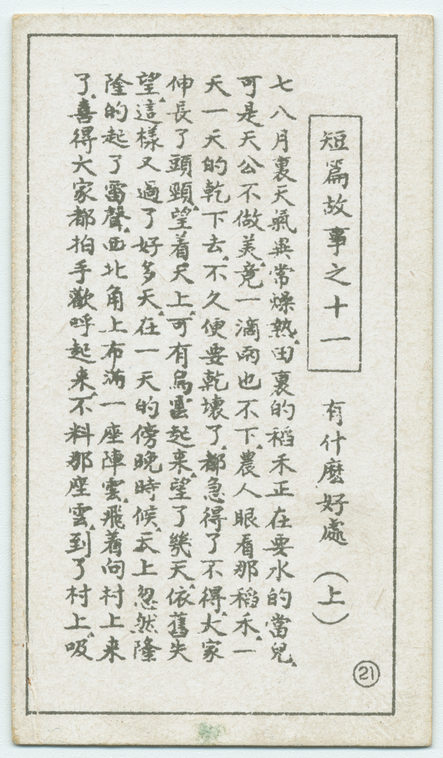 短篇故事之十一
有什麽好處（上）
七八月裏天氣異常燥熱、田裏的稻禾正在要水的當兒、
可是天公不做美、竟一滴雨也不下、農人眼看那稻禾、一
天一天的乾下去、不久便要乾壞了、都急得了不得、大家
伸長了頭頸、望着天上、可有烏雲起來、望了幾天、依舊失
望、這樣又過了好多天、在一天的傍晚時候、天上忽然隆
隆的起了雷聲、西北角上布滿一座陣雲、飛着向村上來
了、喜得大家都拍手歡呼起來、不料那座雲、到了村上、吸
21